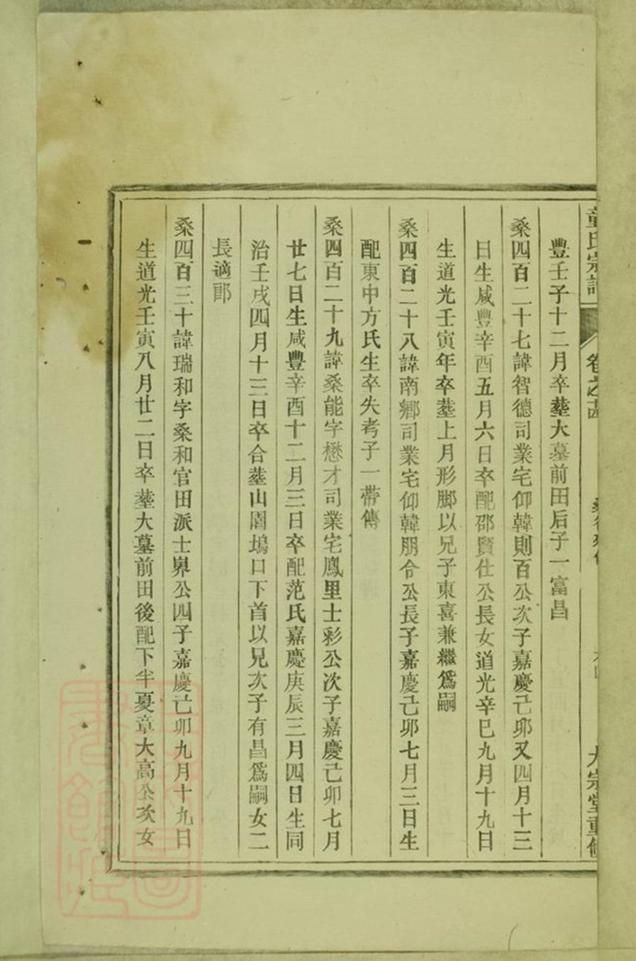 童氏宗譜
卷之
大宗堂重修
豐壬子十二月卒塟大墓前田后子一富昌
桑四百二十七諱智德司業宅仰韓則百公次子嘉慶己卯又四月十三
日生咸豐辛酉五月六日卒配邵賢仕公長女道光辛巳九月十九日
生道光壬寅年卒塟上月形脚以兄子東喜兼繼爲嗣
桑四百二十八諱南鄉司業宅仰韓朋令公長子嘉慶己卯七月三日生
配東中方氏生卒失考子一帶傳
桑四百二十九諱桑能字懋才司業宅鳳里士彩公次子嘉慶己卯七月
廿七日生咸豐辛酉十二月三日卒配范氏嘉慶庚辰三月四日生同
治壬戌四月十三日卒合塟山園塢口下首以兄次子有昌爲嗣女二
長適郎
桑四百三十諱瑞和字桑和官田派士界公四子嘉慶己卯九月十九日
生道光壬寅八月廿二日卒塟大墓前田後配下半夏章大高公次女